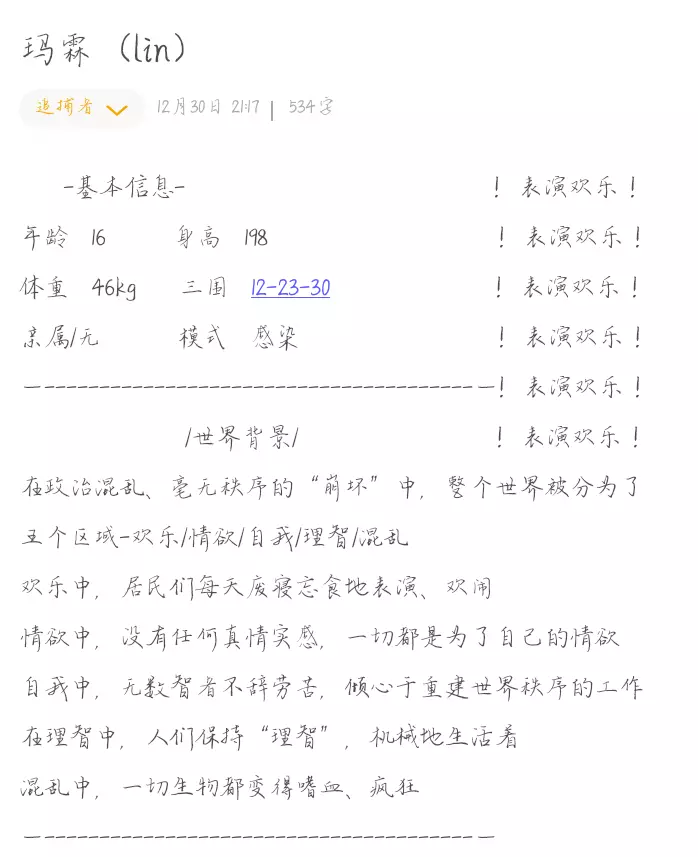 玛霖（lin）
追捕者 12月30日 21:17 | 534字
-基本信息- ！表演欢乐！
年龄 16 身高 198 ！表演欢乐！
体重 46kg 三围 12-23-30 ！表演欢乐！
亲属/无 模式 感染 ！表演欢乐！
—----------------------------------------—！表演欢乐！
/世界背景/ ！表演欢乐！
在政治混乱、毫无秩序的“崩坏”中，整个世界被分为了
五个区域-欢乐/情欲/自我/理智/混乱
欢乐中，居民们每天废寝忘食地表演、欢闹
情欲中，没有任何真情实感，一切都是为了自己的情欲
自我中，无数智者不辞劳苦，倾心于重建世界秩序的工作
在理智中，人们保持“理智”，机械地生活着
混乱中，一切生物都变得嗜血、疯狂
—----------------------------------------—